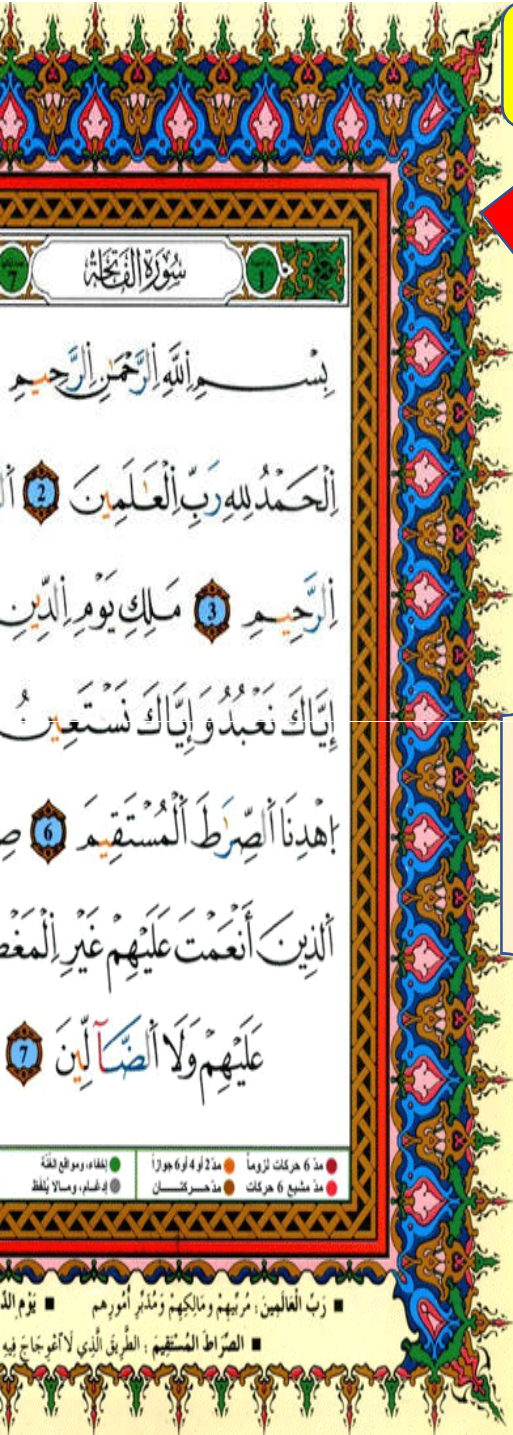 سُورَةُ الْفَاتِحَةِ
بِسْمِ اِللَّهِ اِلرَّحْمَٰنِ اِلرَّحِيمِ
اِلْحَمْدُ لِلهِ رَبِّ اِلْعَٰلَمِينَ 2
اِلرَّحِيمِ 3 مَلِكِ يَوْمِ اِلدِّينِ
إِيَّاكَ نَعْبُدُ وَإِيَّاكَ نَسْتَعِينُ
اِهْدِنَا اَلصِّرَٰطَ اَلْمُسْتَقِيمَ 6
اَلذِينَ أَنْعَمْتَ عَلَيْهِمْ غَيْرِ
عَلَيْهِمْ وَلَا اَلضَّآلِّينَ 7
مدّ 6 حركات لزوماً مدّ 2 أو 4 أو 6 جوازاً إخفاء، ومواقع الغُنَّة
مدّ مشبع 6 حركات مدّ حركتان إدغام، ومالا يُلفَظ
رَبِّ الْعَالَمِينَ : مُرَبِّيهِمْ وَمَالِكِهِمْ وَمُدَبِّرِ أُمُورِهِم يَوْمِ
الصِّرَاطَ الْمُسْتَقِيمَ : الطَّرِيقَ الَّذِي لَا اعْوِجَاجَ فِيهِ